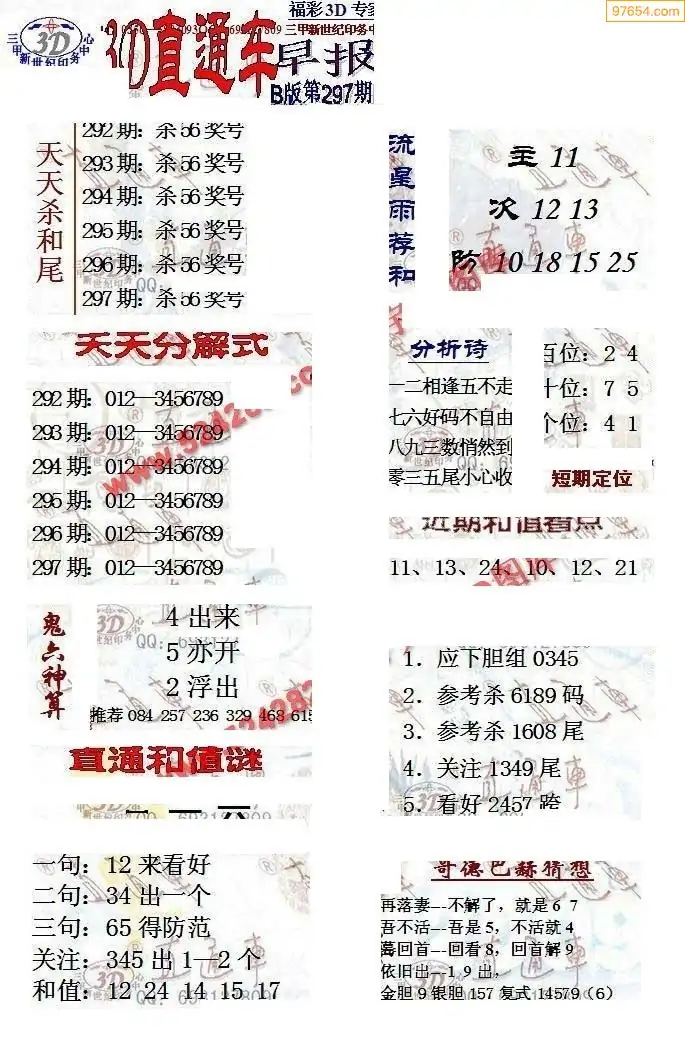 97654.com
福彩3D 专家
三甲 3D 中心
新世纪印务
3D直通车
早报
B版第297期
天天杀和尾
292期: 杀56奖号
293期: 杀56奖号
294期: 杀56奖号
295期: 杀56奖号
296期: 杀56奖号
297期: 杀56奖号
流星雨荐和
主 11
次 12 13
防 10 18 15 25
天天分解式
292期: 012—3456789
293期: 012—3456789
294期: 012—3456789
295期: 012—3456789
296期: 012—3456789
297期: 012—3456789
分析诗
一二相逢五不走
七六好码不自由
八九三数悄然到
零三五尾小心收
百位: 2 4
十位: 7 5
个位: 4 1
短期定位
近期和值看点
11、13、24、10、12、21
鬼六神算
4 出来
5 亦开
2 浮出
推荐 084 257 236 329 468 615
1. 应下胆组 0345
2. 参考杀 6189 码
3. 参考杀 1608 尾
4. 关注 1349 尾
5. 看好 2457 跨
直通和值谜
一句: 12 来看好
二句: 34 出一个
三句: 65 得防范
关注: 345 出 1—2 个
和值: 12 24 14 15 17
哥德巴赫猜想
再落妻---不解了，就是 6 7
吾不活---吾是 5，不活就 4
蓦回首---回看 8，回首解 9
依旧出---1 9 出，
金胆 9 银胆 157 复式 14579（6）